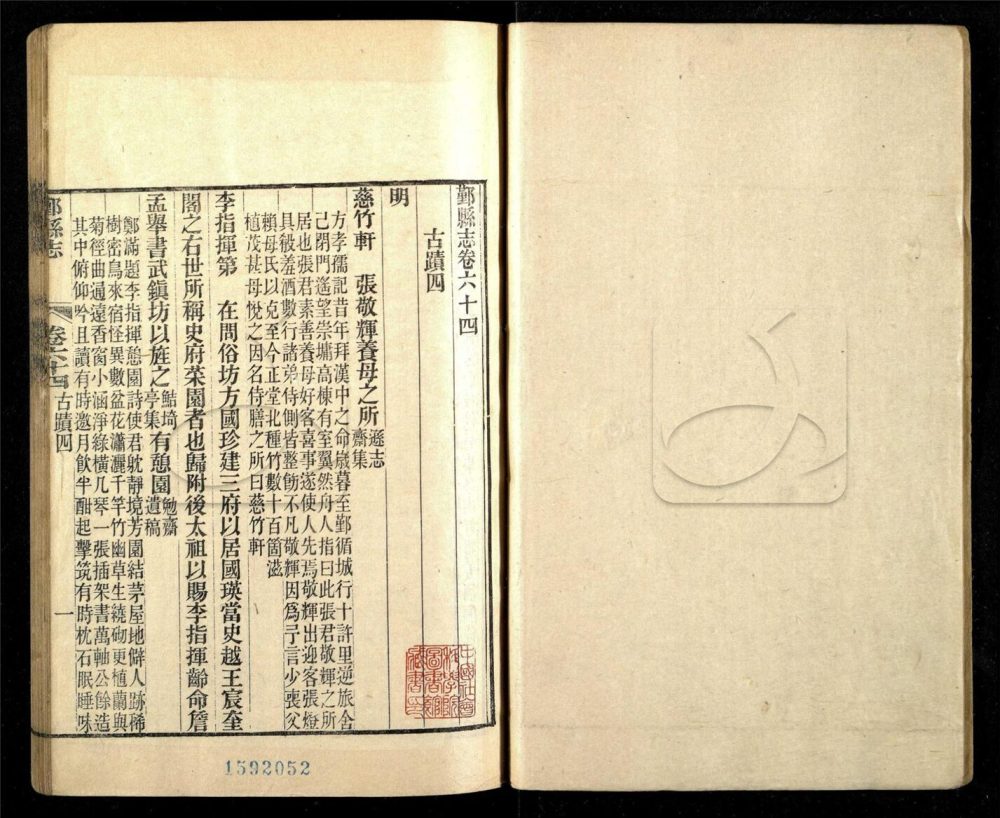 鄞縣志卷六十四
古蹟四
明
慈竹軒　張敬輝養母之所遜志齋集
方孝孺記昔年拜漢中之命歲暮至鄞循城行十許里逆旅舍
己閉門遙望崇墉高棟有室翼然舟人指曰此張君敬輝之所
居也張君素善養母好客喜事遂使人先焉敬輝出迎客張燈
具殽羞酒數行諸弟侍側皆整飭不凡敬輝因爲予言少喪父
賴母氏以克至今正堂北種竹數十百箇滋
植茂甚母悅之因名侍膳之所曰慈竹軒
李指揮第　在問俗坊方國珍建三府以居國瑛當史越王宸奎
閣之右世所稱史府菜園者也歸附後太祖以賜李指揮齡命詹
孟舉書武鎭坊以旌之鮚埼亭集有憩園勉齋遺稿
鄭滿題李指揮憩園詩使君躭靜境芳園結茅屋地僻人跡稀
樹密鳥來宿怪異數盆花瀟灑千竿竹幽草生繞砌更植蘭與
菊徑曲逼遠香窗小涵淨綠橫几琴一張插架書萬軸公餘造
其中俯仰吟且讀有時邀月飲半酣起擊筑有時枕石眠睡味
鄞縣志
卷六十四
古蹟四
一
1592052